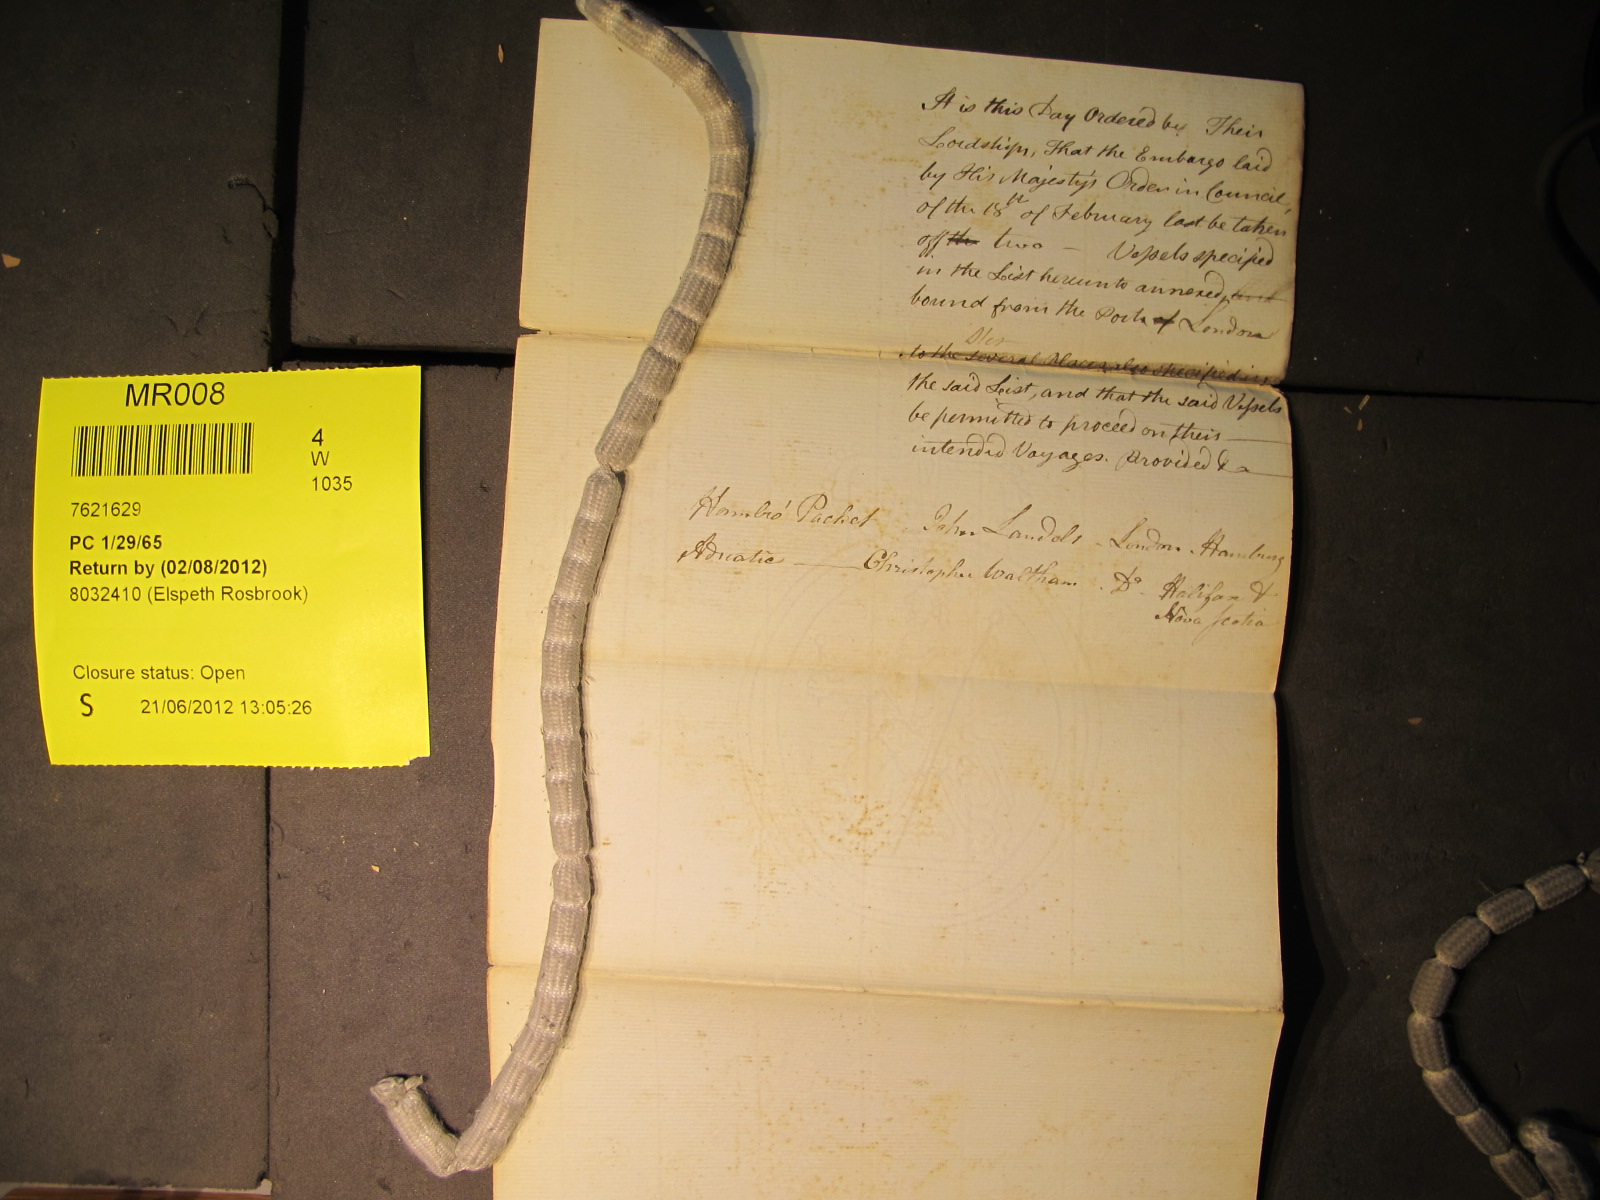 MR008
4
W
1035
7621629
PC 1/29/65
Return by (02/08/2012)
8032410 (Elspeth Rosbrook)
Closure status: Open
S 21/06/2012 13:05:26
It is this Day Ordered by Their
Lordships, That the Embargo laid
by His Majesty's Order in Council,
of the 18th of February last be taken
off the two — Vessels specified
in the List hereunto annexed,
bound from the Port of London
to the several Places also specified in
the said List, and that the said Vessels
be permitted to proceed on their —
intended Voyages. Provided &a —
Hambro' Packet John Landels - London - Hamburg
Adriatic — Christopher Waltham - Do - Halifax &
Nova Scotia